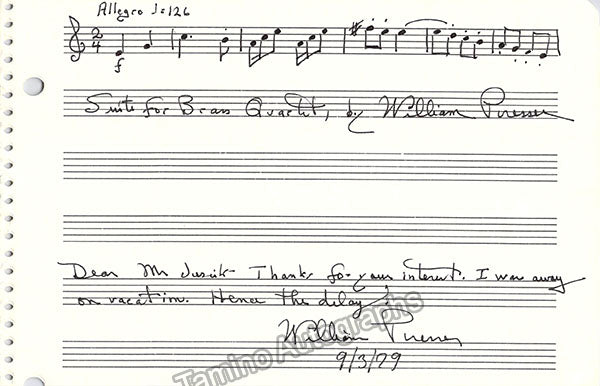 Allegro ♩=126
2
4
f
Suite for Brass Quartet, by William Presser
Dear Mr Thanks for your interest. I was away
on vacation. Hence the delay!
William Presser
9/3/79
Tamino Autographs